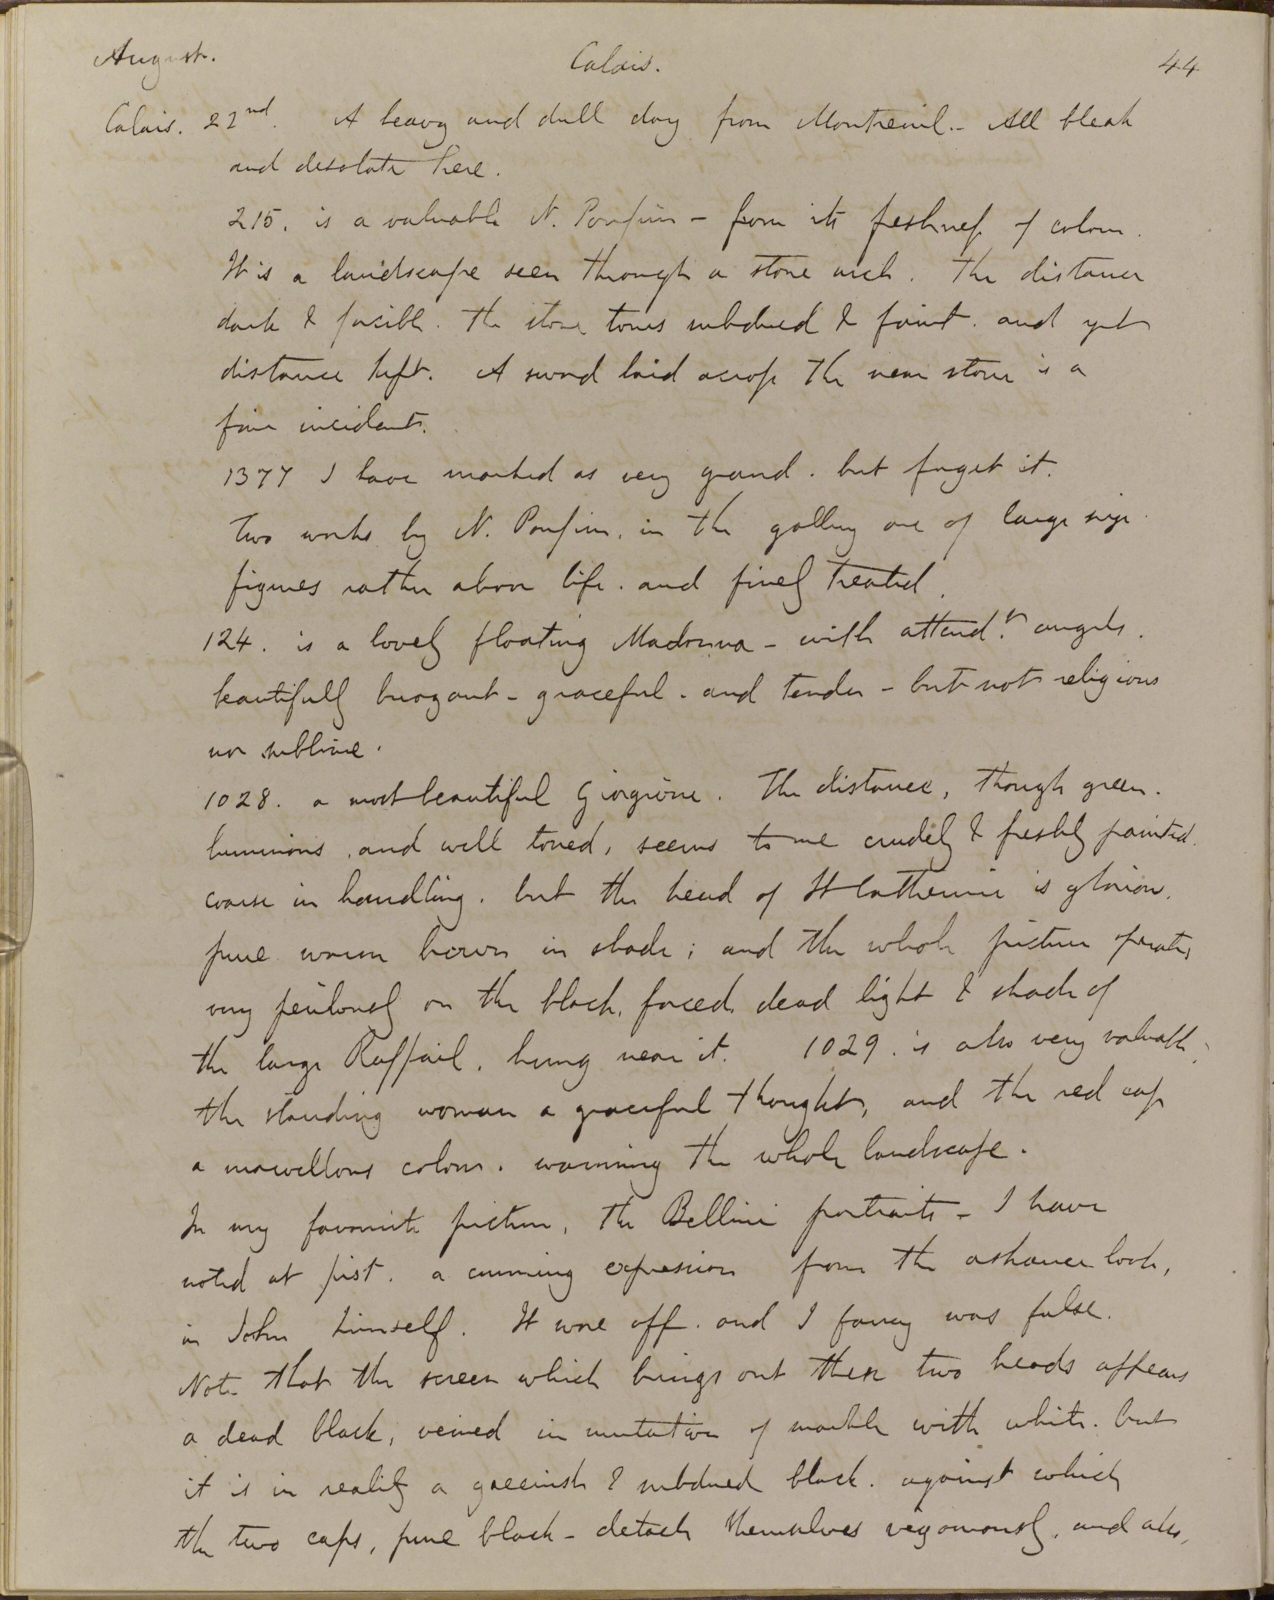 August. Calais. 44
Calais. 22nd. A heavy and dull day from Montreuil - All bleak
and desolate here.
215. is a valuable N. Poussin - from its freshness of colour.
It is a landscape seen through a stone arch. The distance
dark & forcible. The stone tones subdued & faint. and yet
distance kept. A sword laid across the near stone is a
fine incident.
1377 I have marked as very grand. but forget it.
Two works by N. Poussin, in the gallery are of large size
figures rather above life. and finely treated.
124. is a lovely floating Madonna - with attendt angels.
beautifully buoyant - graceful - and tender - but not religious
nor sublime.
1028. a most beautiful Giorgione. The distance, though green.
luminous, and well toned, seems to me crudely & freshly painted.
coarse in handling. but the head of St Catherine is glorious.
pure warm brown in shade; and the whole picture operates
very perilously on the black, forced, dead light & shade of
the large Raffail, hung near it. 1029. is also very valuable,
the standing woman a graceful thought, and the red cap
a marvellous colour. warming the whole landscape.
In my favourite picture, the Bellini portraits - I have
noted at first. a cunning expression from the askance look,
in John himself. It wore off. and I fancy was false.
Note that the screen which brings out these two heads appears
a dead black, veined in imitation of marble with white. but
it is in reality a greenish & subdued black. against which
the two caps, pure black - detach themselves vigorously, and also,